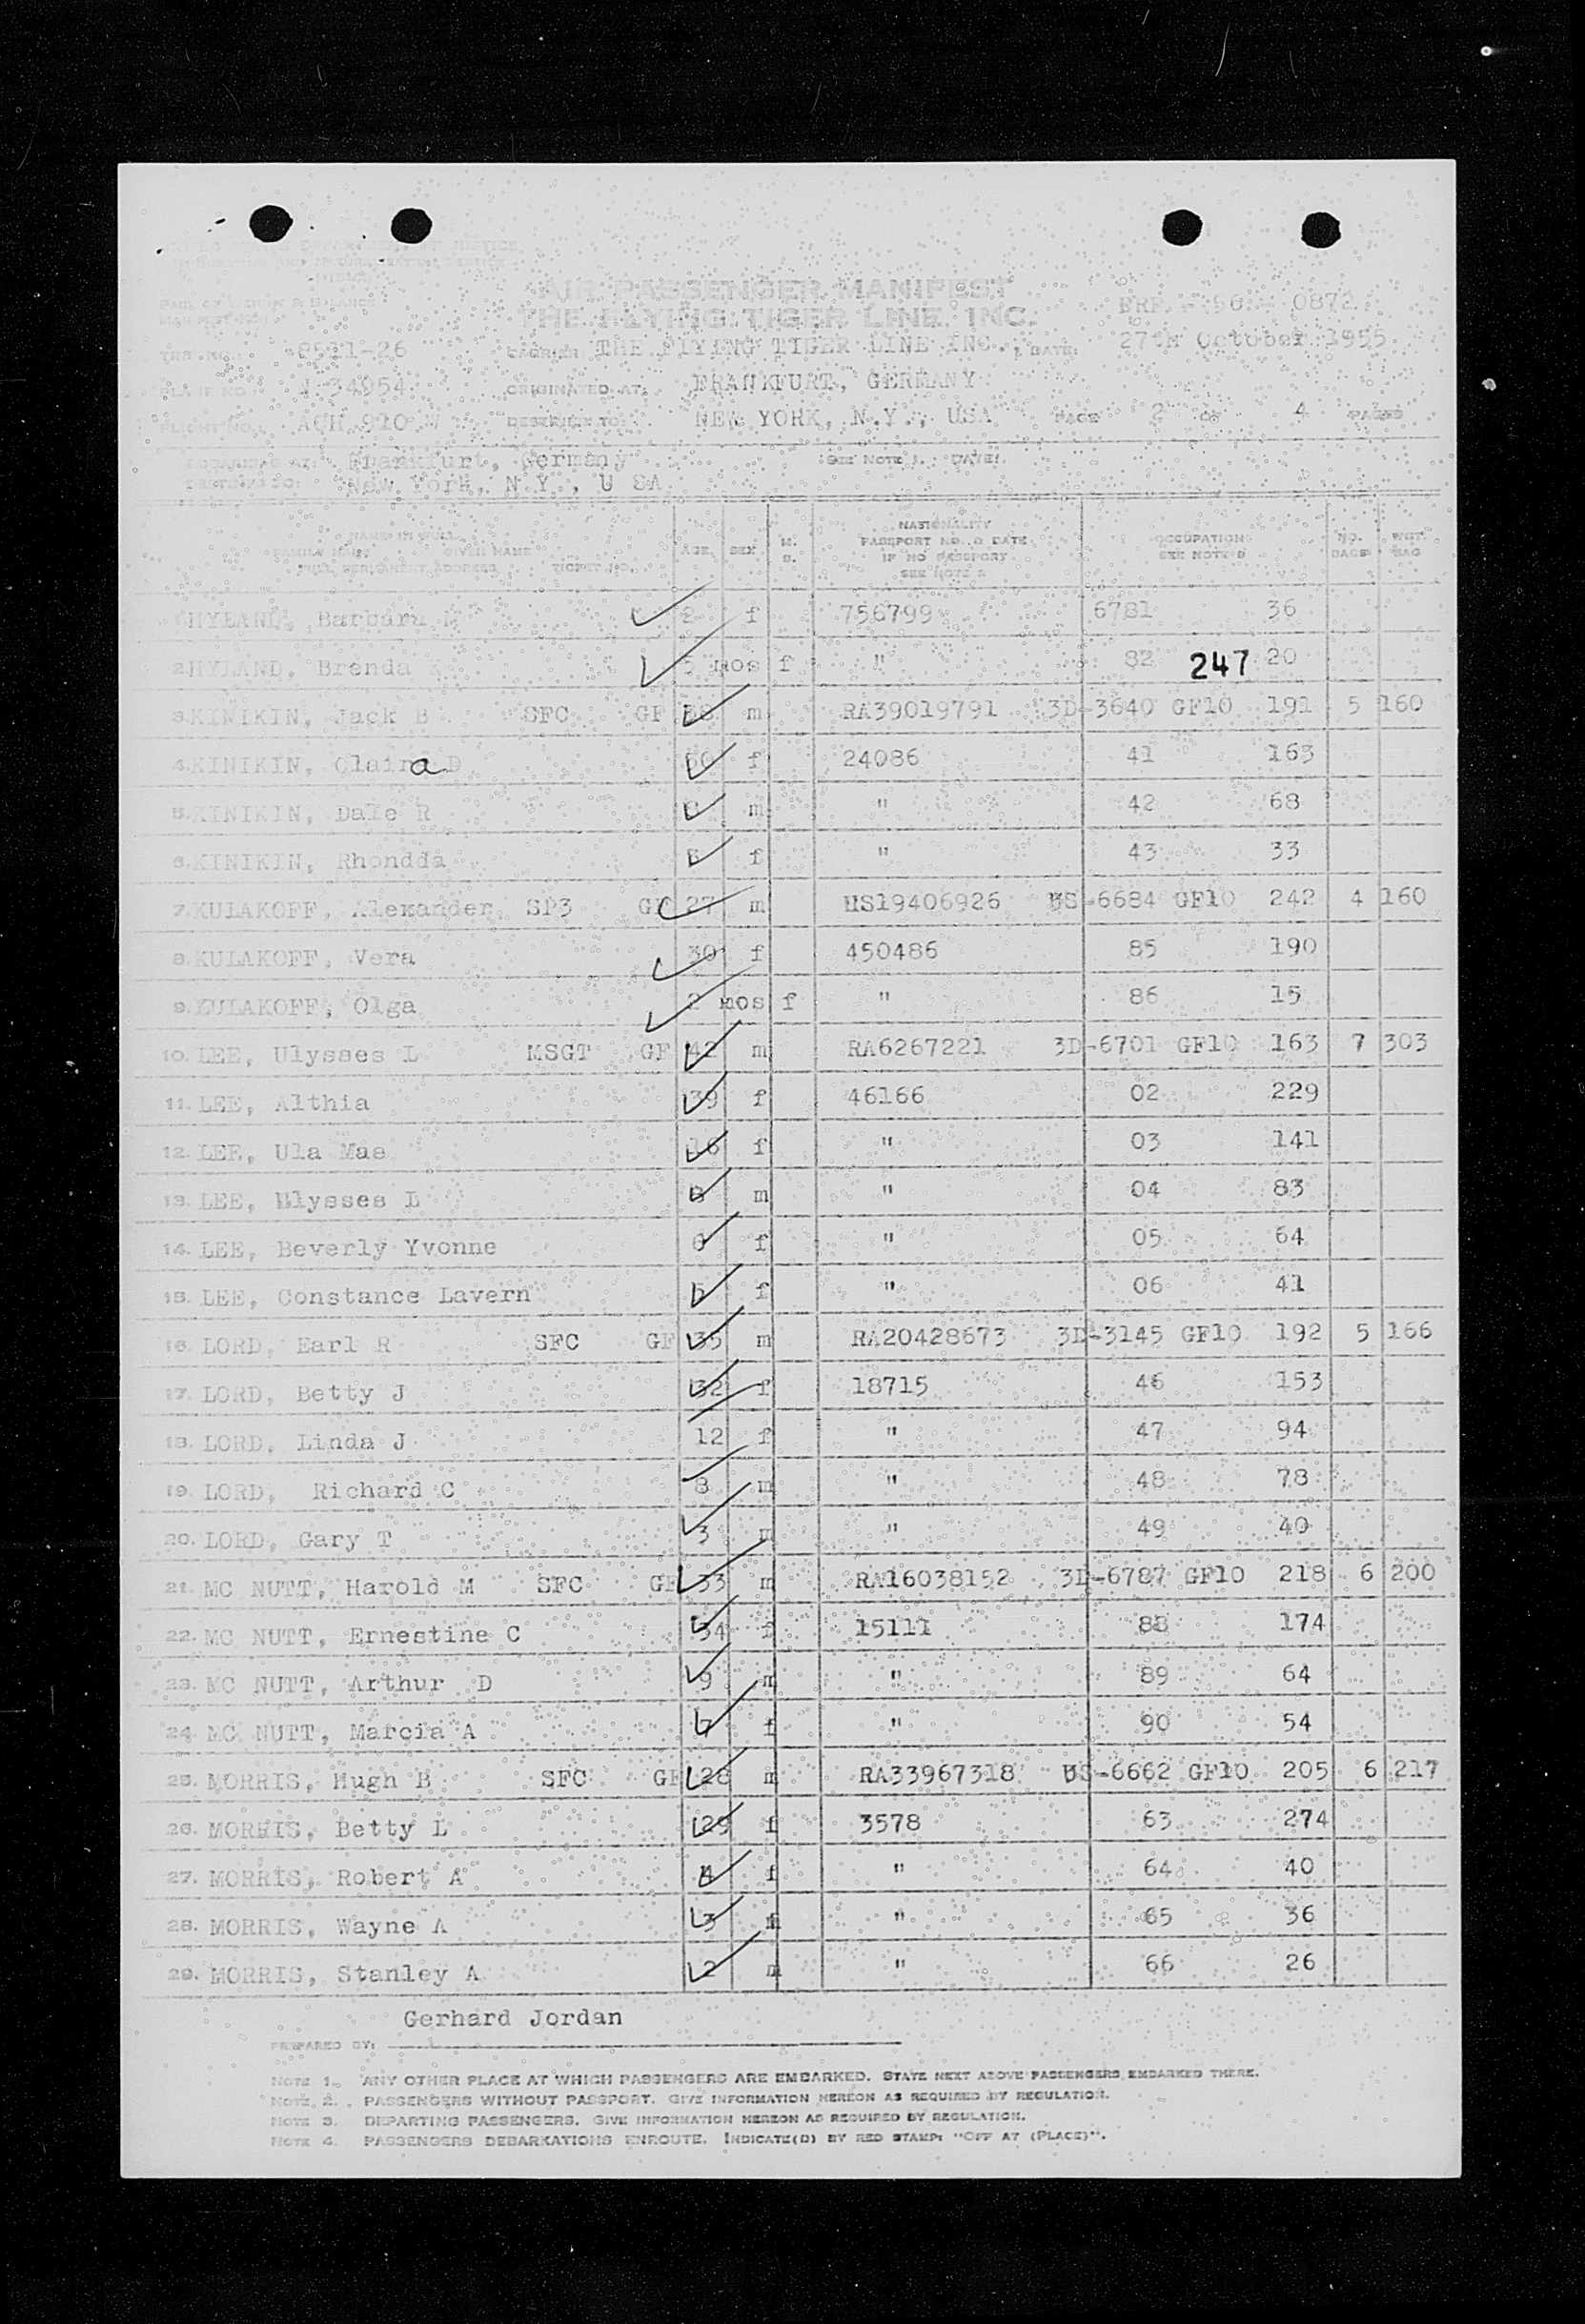 AIR PASSENGER MANIFEST
THE FLYING TIGER LINE INC.
0872
27th October 1955
CARRIER THE FLYING TIGER LINE INC., DATE:
ORIGINATED AT: FRANKFURT, GERMANY
DESTINED TO: NEW YORK, N.Y., USA PAGE 2 OF 4 PAGES
Frankfurt, Germany SEE NOTE 1. DATE:
New York, N.Y., U SA
NAME IN FULL
FAMILY NAME GIVEN NAME
FULL PERMANENT ADDRESS TICKET NO.
AGE SEX M. S.
NATIONALITY
PASSPORT NO. & DATE
IF NO PASSPORT
SEE NOTE 2
OCCUPATION
SEE NOTE 3
NO. BAGS WGT. BAG
HYLAND, Barbara 2 f 756799 6781 36
2. HYLAND, Brenda mos f " 82 247 20
3. KINIKIN, Jack B SFC GF m RA39019791 3D-3640 GF10 191 5 160
4. KINIKIN, Claira D f 24086 41 163
5. KINIKIN, Dale R m " 42 68
6. KINIKIN, Rhondda f " 43 33
7. KULAKOFF, Alexander SP3 GF 27 m US19406926 US-6684 GF10 242 4 160
8. KULAKOFF, Vera 30 f 450486 85 190
9. KULAKOFF, Olga 2 mos f " 86 15
10. LEE, Ulysses L MSGT GF 42 m RA6267221 3D-6701 GF10 163 7 303
11. LEE, Althia 39 f 46166 02 229
12. LEE, Ula Mae 16 f " 03 141
13. LEE, Ulysses L 8 m " 04 83
14. LEE, Beverly Yvonne 6 f " 05 64
15. LEE, Constance Lavern 5 f " 06 41
16. LORD, Earl R SFC GF 35 m RA20428673 3D-3145 GF10 192 5 166
17. LORD, Betty J 32 f 18715 46 153
18. LORD, Linda J 12 f " 47 94
19. LORD, Richard C 8 m " 48 78
20. LORD, Gary T 3 m " 49 40
21. MC NUTT, Harold M SFC GF 33 m RA16038152 3D-6787 GF10 218 6 200
22. MC NUTT, Ernestine C 34 f 15111 88 174
23. MC NUTT, Arthur D 9 m " 89 64
24. MC NUTT, Marcia A 7 f " 90 54
25. MORRIS, Hugh B SFC GF 28 m RA33967318 US-6662 GF10 205 6 217
26. MORRIS, Betty L 29 f 3578 63 274
27. MORRIS, Robert A 4 f " 64 40
28. MORRIS, Wayne A 3 m " 65 36
29. MORRIS, Stanley A 2 m " 66 26
Gerhard Jordan
PREPARED BY:
NOTE 1. ANY OTHER PLACE AT WHICH PASSENGERS ARE EMBARKED. STATE NEXT ABOVE PASSENGERS EMBARKED THERE.
NOTE 2. PASSENGERS WITHOUT PASSPORT. GIVE INFORMATION HEREON AS REQUIRED BY REGULATION.
NOTE 3. DEPARTING PASSENGERS. GIVE INFORMATION HEREON AS REQUIRED BY REGULATION.
NOTE 4. PASSENGERS DEBARKATIONS ENROUTE. INDICATE(D) BY RED STAMP: "OFF AT (PLACE)".